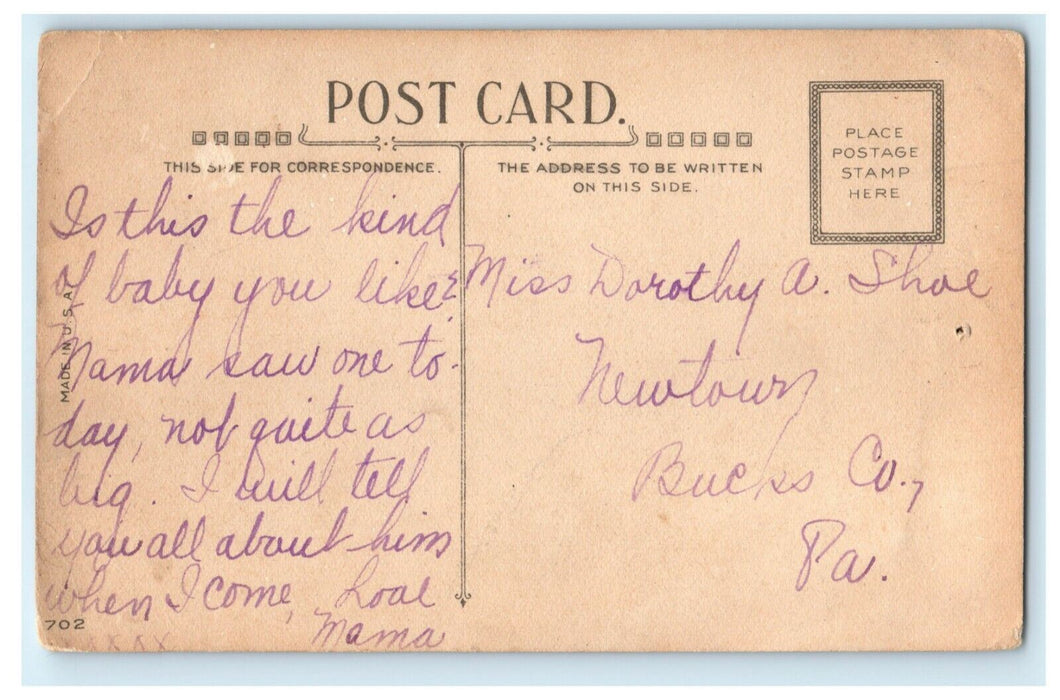 POST CARD.
THIS SIDE FOR CORRESPONDENCE.
Is this the kind
of baby you like?
Mama saw one to-
day, not quite as
big. I will tell
you all about him
when I come,
Mama
XXXX
MADE IN U.S.A.
702
THE ADDRESS TO BE WRITTEN
ON THIS SIDE.
PLACE
POSTAGE
STAMP
HERE
Miss Dorothy A. Shoe
Newtown
Bucks Co.,
Pa.